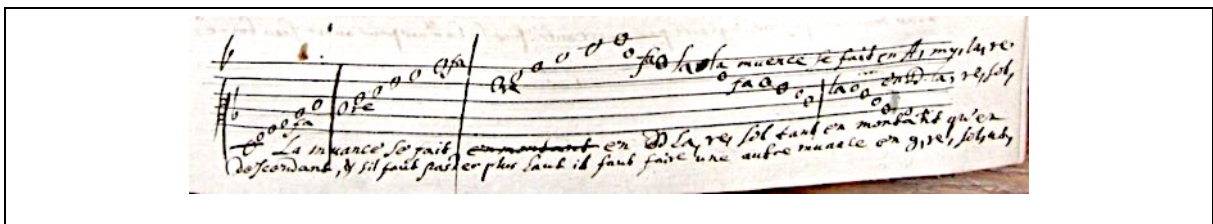 fa re fa re fa la la muence se fait en A, my, la, re
fa la en D la, re, sol,
La muance se fait enmontant en D la, re, sol tant en montant qu'en
descendant, & sil faut passer plus haut il faut faire une autre muance en g, re, sol, ut,